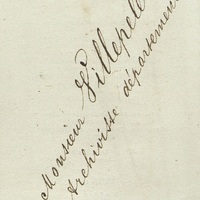 Monsieur Villepelet
Archiviste département